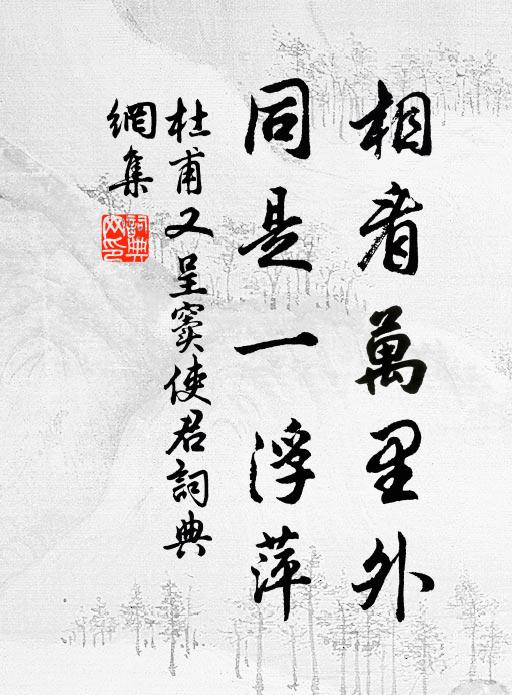 相看萬里外
同是一浮萍
杜甫又呈竇使君詞典
網集
詞典網印